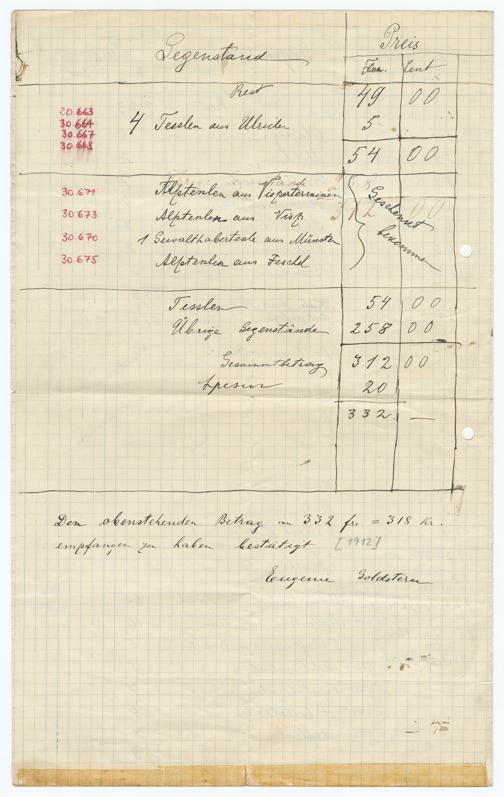 Gegenstand Preis
Frs. Cent
Rest 49 00
30.663
30.664 4 Tesslen aus Ulrichen 5
30.667
30.668
54 00
30.671 Alptenlen aus Visperterminen
30.673 Alptenlen aus Visp
30.670 1 Gewalthabertesle aus Münster
30.675 Alptenlen aus Fieschl
Geschenkt bekommen
Tesslen 54 00
Übrige Gegenstände 258 00
Gesammtbetrag 312 00
Spesen 20
332 —
Den obenstehenden Betrag von 332 frs = 318 Kr.
empfangen zu haben bestätigt [1912]
Eugenie Goldstern